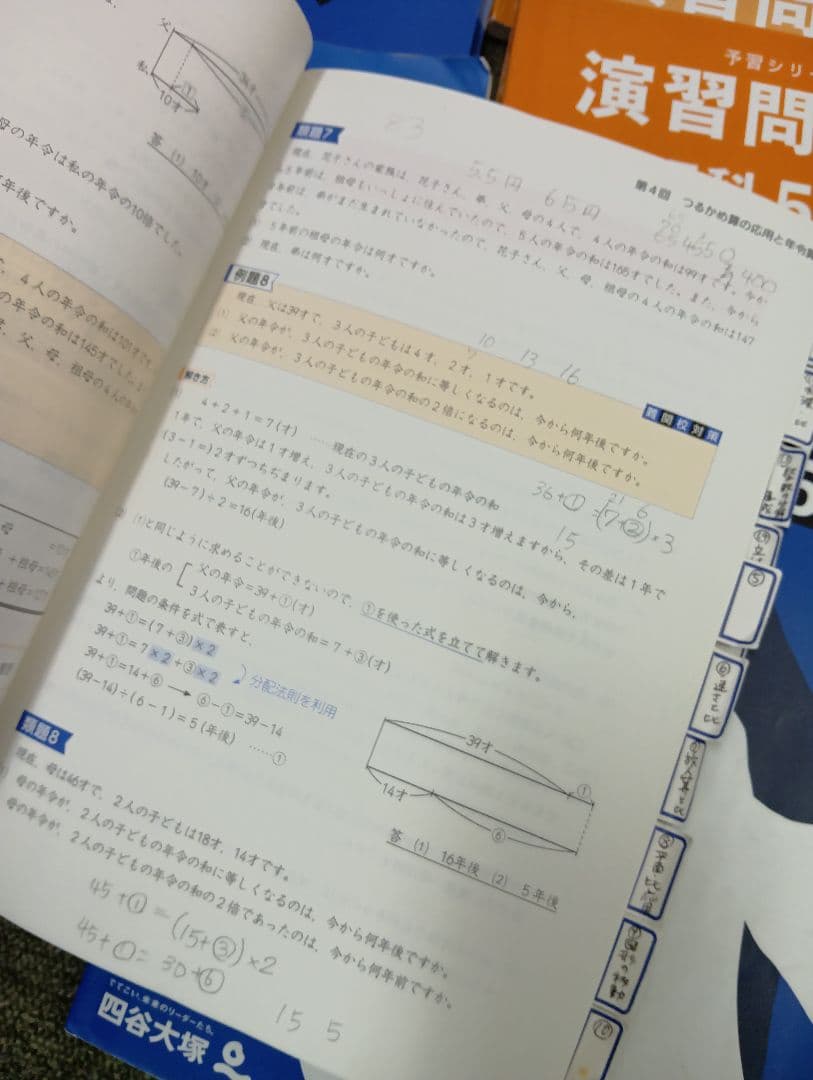 父
私
①
10才
答 (1) 10才
母の年令は私の年令の10倍でした。
年後ですか。
4人の年令の和は101才です。
の年令の和は145才でした。
父、母、祖母の4人の年
母
予習シリー
演習問
科5
第4回 つるかめ算の応用と年令算
類題7
現在、花子さんの家族は、花子さん、弟、父、母の4人で、4人の年令の和は99才です。今か
ら5年前は、祖母もいっしょに住んでいたので、5人の年令の和は168才でした。また、今から
年前は、弟がまだ生まれていなかったので、花子さん、父、母、祖母の4人の年令の和は147
でした。
5年前の祖母の年令は何才ですか。
現在、弟は何才ですか。
55円 65円
400
例題8
難関校対策
現在、父は39才で、3人の子どもは4才、2才、1才です。
(1) 父の年令が、3人の子どもの年令の和に等しくなるのは、今から何年後ですか。
(2) 父の年令が、3人の子どもの年令の和の2倍になるのは、今から何年後ですか。
10 13 16
7
解き方
4+2+1=7(才) ……現在の3人の子どもの年令の和
1年で、父の年令は1才増え、3人の子どもの年令の和は3才増えますから、その差は1年で
(3-1=)2才ずつちぢまります。
したがって、父の年令が、3人の子どもの年令の和に等しくなるのは、今から、
(39-7)÷2=16(年後)
36+①=(7+②)×3
21 6
15
(1)と同じように求めることができないので、①を使った式を立てて解きます。
①年後の[父の年令=39+①(才)
3人の子どもの年令の和=7+③(才)
より、問題の条件を式で表すと、
39+①=(7+③)×2
39+①=7×2+③×2
分配法則を利用
39+①=14+⑥→⑥-①=39-14
(39-14)÷(6-1)=5(年後) ……①
39才
①
14才
⑥
答 (1) 16年後 (2) 5年後
類題8
現在、母は46才で、2人の子どもは18才、14才です。
母の年令が、2人の子どもの年令の和に等しくなるのは、今から何年後ですか。
母の年令が、2人の子どもの年令の和の2倍であったのは、今から何年前ですか。
45+①=(15+③)×2
45+①=30+⑥
15 5
⑤
⑥速さと比
⑩
でてこい、未来のリーダーたち。
四谷大塚